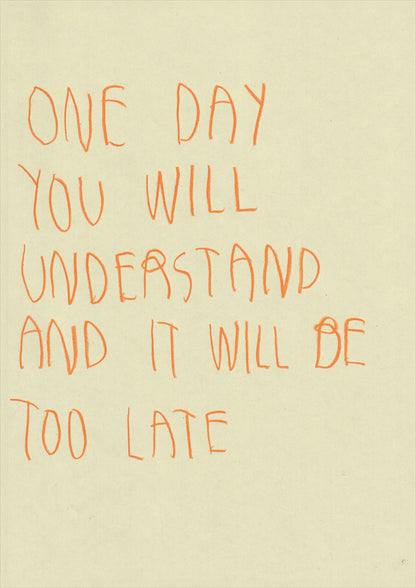 ONE DAY
YOU WILL
UNDERSTAND
AND IT WILL BE
TOO LATE